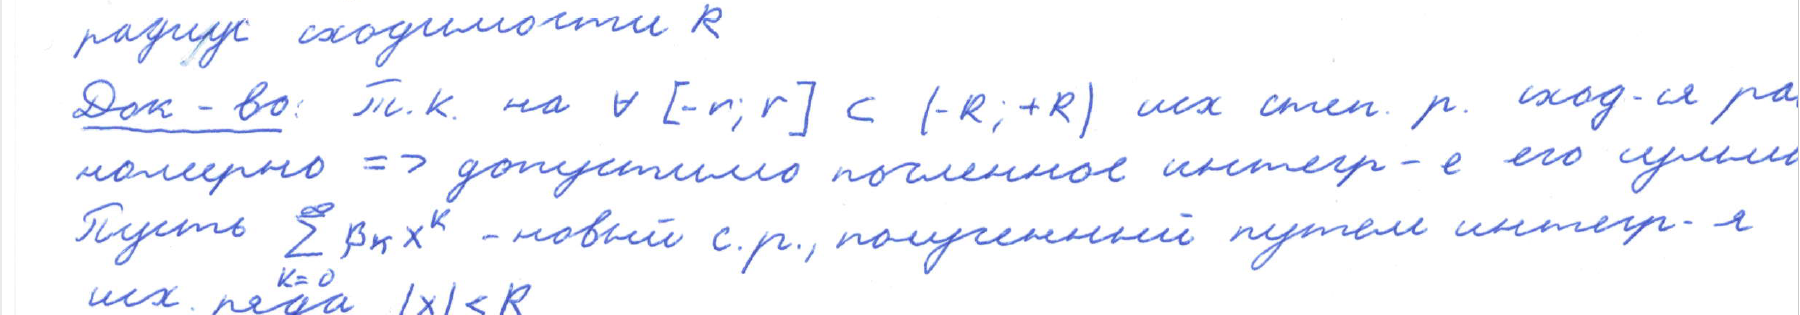 радиус сходимости R
Док-во: Т.к. на ∀ [-r; r] ⊂ (-R; +R) исх степ. р. сход-ся ра
номерно => допустимо почленное интегр-е его суммы
Пусть ∑_{k=0}^{∞} β_k x^k - новый с.р., полученный путем интегр-я
исх. ряда |x| < R